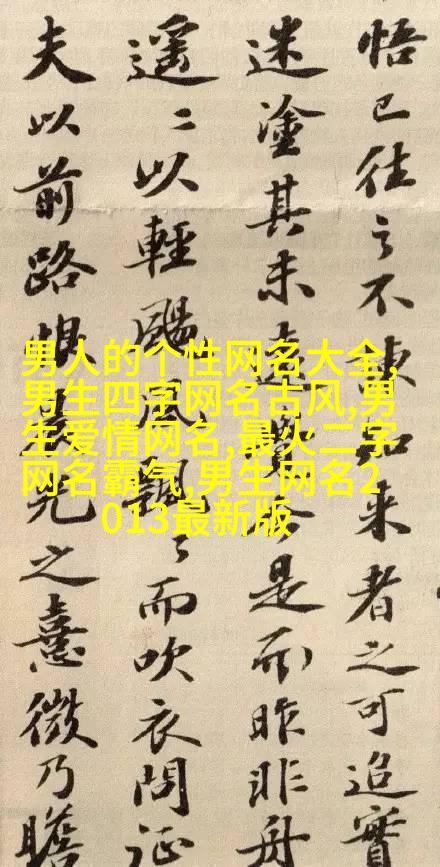 悟已往之不諫知来者之可追實
迷塗其未遠覺今是而昨非舟
遥〻以輕颺風飄〻而吹衣問征
夫以前路恨晨光之熹微乃瞻
男人的个性网名大全,
男生四字网名古风,男
生爱情网名,最火二字
网名霸气,男生网名2
013最新版